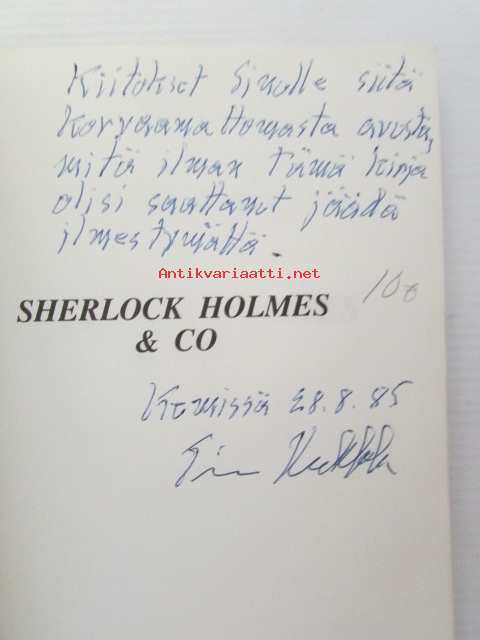 Kiitokset Sinulle siitä
korvaamattomasta avusta,
mitä ilman tämä kirja
olisi saattanut jäädä
ilmestymättä.
Antikvariaatti.net
SHERLOCK HOLMES
& CO
Kemissä 28.8.85